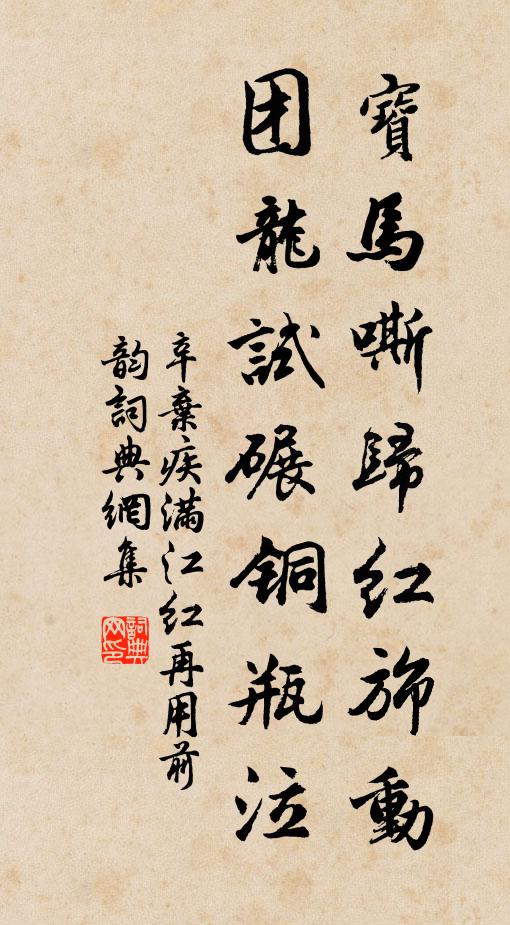 寶馬嘶歸紅斾動
团龍試碾铜瓶泣
辛棄疾滿江红再用前
韵詞典網集
詞典網印